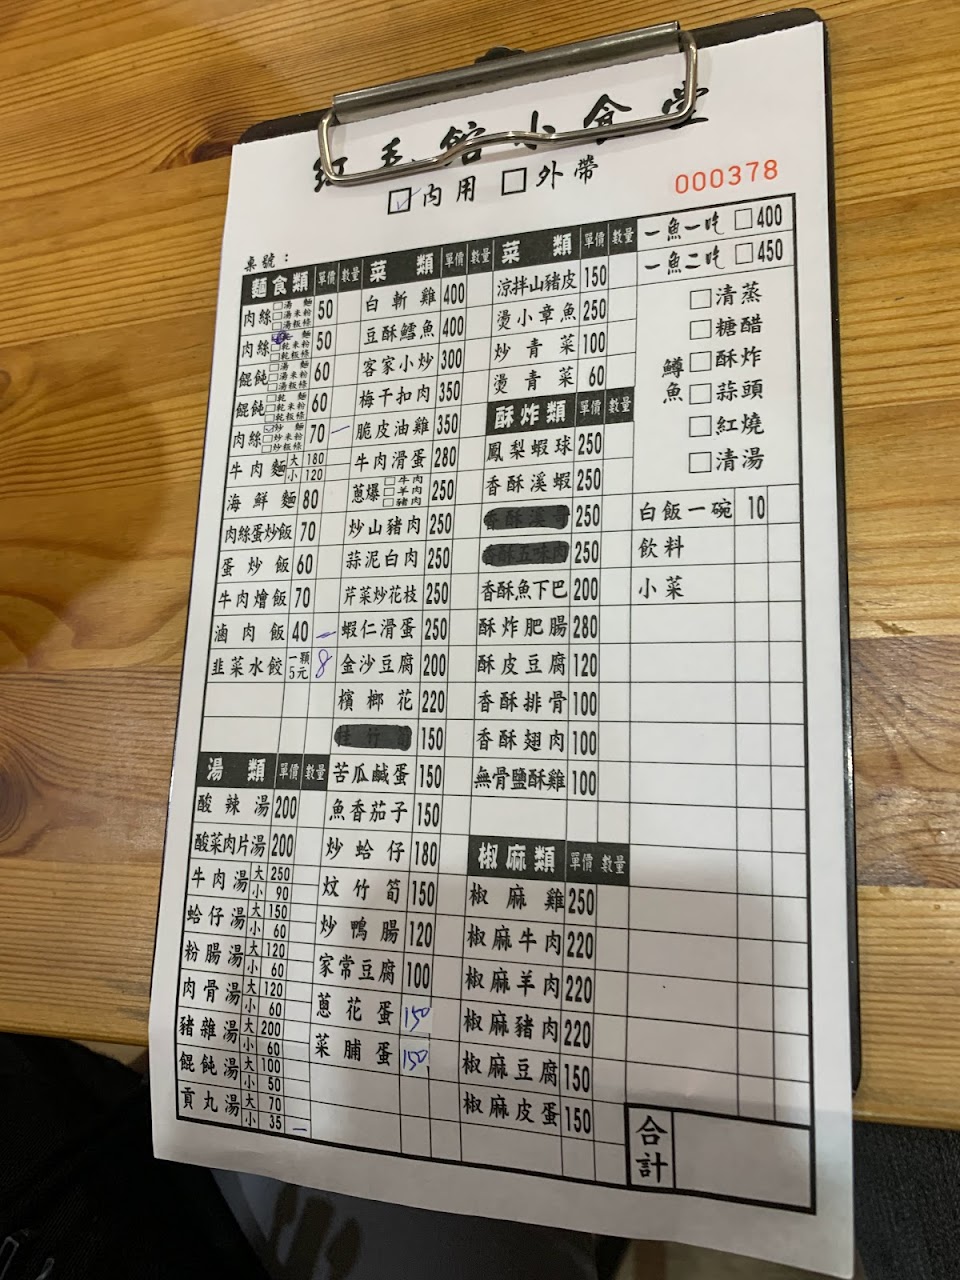 紅毛館小食堂
☑內用 □外帶
000378
桌號：
麵食類 單價 數量
肉絲 □湯麵 □湯米粉 □湯粄條 50
肉絲 乾麵 □乾米粉 □乾粄條 50
餛飩 □湯麵 □湯米粉 □湯粄條 60
餛飩 □乾麵 □乾米粉 □乾粄條 60
肉絲 ☑炒麵 □炒米粉 □炒粄條 70 一
牛肉麵 大 180 小 120
海鮮麵 80
肉絲蛋炒飯 70
蛋炒飯 60
牛肉燴飯 70
滷肉飯 40 一
韭菜水餃 一顆5元 8
湯類 單價 數量
酸辣湯 200
酸菜肉片湯 200
牛肉湯 大 250 小 90
蛤仔湯 大 150 小 60
粉腸湯 大 120 小 60
肉骨湯 大 120 小 60
豬雜湯 大 200 小 60
餛飩湯 大 100 小 50
貢丸湯 大 70 小 35 一
菜類 單價 數量
白斬雞 400
豆酥鱈魚 400
客家小炒 300
梅干扣肉 350
脆皮油雞 350
牛肉滑蛋 280
蔥爆 □牛肉 □羊肉 □豬肉 250
炒山豬肉 250
蒜泥白肉 250
芹菜炒花枝 250
蝦仁滑蛋 250
金沙豆腐 200
檳榔花 220
桂竹筍 150
苦瓜鹹蛋 150
魚香茄子 150
炒蛤仔 180
炆竹筍 150
炒鴨腸 120
家常豆腐 100
蔥花蛋 150
菜脯蛋 150
菜類 單價 數量
涼拌山豬皮 150
燙小章魚 250
炒青菜 100
燙青菜 60
酥炸類 單價 數量
鳳梨蝦球 250
香酥溪蝦 250
香酥溪哥 250
香酥五味肉 250
香酥魚下巴 200
酥炸肥腸 280
酥皮豆腐 120
香酥排骨 100
香酥翅肉 100
無骨鹽酥雞 100
椒麻類 單價 數量
椒麻雞 250
椒麻牛肉 220
椒麻羊肉 220
椒麻豬肉 220
椒麻豆腐 150
椒麻皮蛋 150
一魚一吃 □400
一魚二吃 □450
鱒魚
□清蒸
□糖醋
□酥炸
□蒜頭
□紅燒
□清湯
白飯一碗 10
飲料
小菜
合計